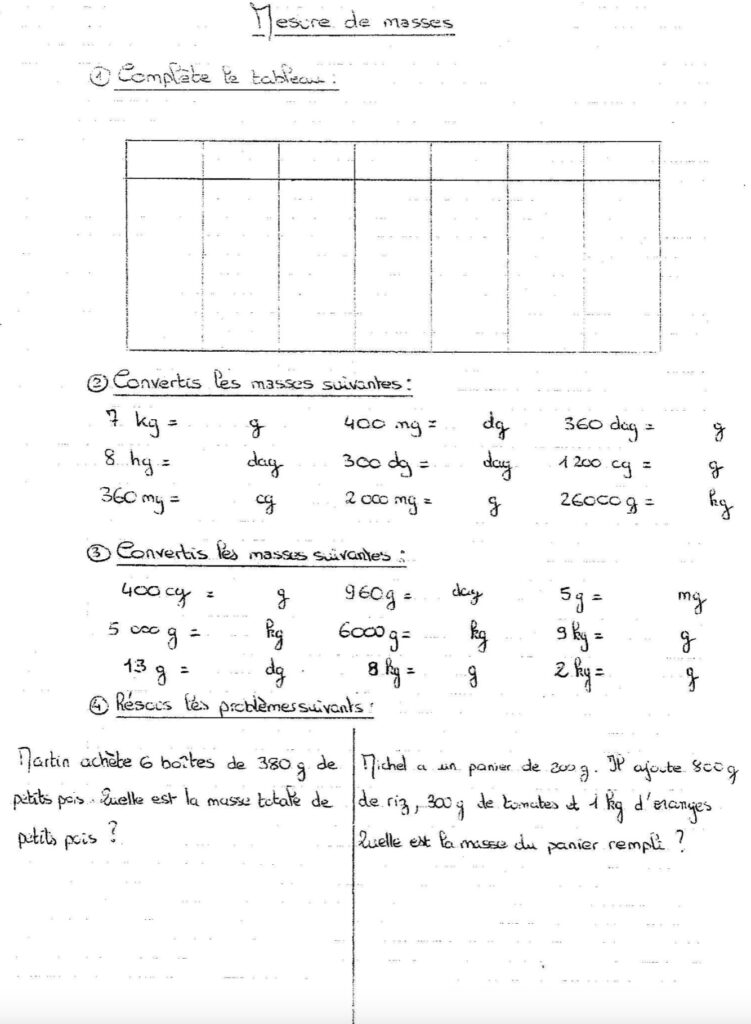 Mesure de masses
① Complète le tableau :
② Convertis les masses suivantes :
7 kg = g 400 mg = dg 360 dag = g
8 hg = dag 300 dg = dag 1 200 cg = g
360 mg = cg 2 000 mg = g 26000 g = kg
③ Convertis les masses suivantes :
400 cg = g 960 g = dag 5 g = mg
5 000 g = kg 6000 g = kg 9 kg = g
13 g = dg 8 kg = g 2 kg = g
④ Résous les problèmes suivants :
Martin achète 6 boîtes de 380 g de
petits pois. Quelle est la masse totale de
petits pois ?
Michel a un panier de 200 g. Il ajoute 800 g
de riz, 300 g de tomates et 1 kg d'oranges
Quelle est la masse du panier rempli ?